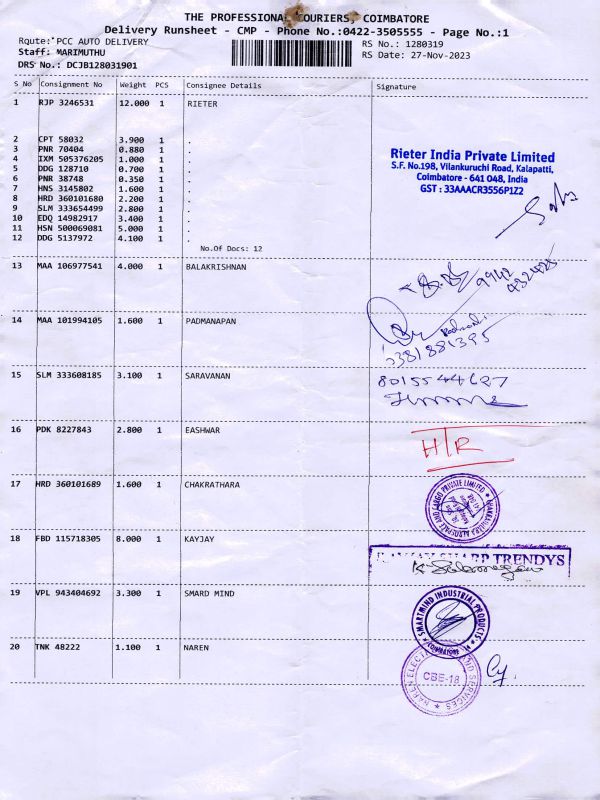 THE PROFESSIONAL COURIERS, COIMBATORE
Delivery Runsheet - CMP - Phone No.:0422-3505555 - Page No.:1
Rqute: PCC AUTO DELIVERY
RS No.: 1280319
Staff: MARIMUTHU
RS Date: 27-Nov-2023
DRS No.: DCJB128031901
S No Consignment No Weight PCS Consignee Details Signature
1 RJP 3246531 12.000 1 RIETER
2 CPT 58032 3.900 1 .
3 PNR 70404 0.880 1 .
4 IXM 505376205 1.000 1 .
5 DDG 128710 0.700 1 .
6 PNR 38748 0.350 1 .
7 HNS 3145802 1.600 1 .
8 HRD 360101680 2.200 1 .
9 SLM 333654499 2.800 1 .
10 EDQ 14982917 3.400 1 .
11 HSN 500069081 5.000 1 .
12 DDG 5137972 4.100 1 .
No.Of Docs: 12
Rieter India Private Limited
S.F. No.198, Vilankuruchi Road, Kalapatti,
Coimbatore - 641 048, India
GST : 33AAACR3556P1Z2
13 MAA 106977541 4.000 1 BALAKRISHNAN
9942
432425
14 MAA 101994105 1.600 1 PADMANAPAN
15 SLM 333608185 3.100 1 SARAVANAN
8015544627
16 PDK 8227843 2.800 1 EASHWAR
HTR
17 HRD 360101689 1.600 1 CHAKRATHARA
CHAKRADHARA AEROSPACE AND CARGO PRIVATE LIMITED
18 FBD 115718305 8.000 1 KAYJAY
TRENDYS
19 VPL 943404692 3.300 1 SMARD MIND
SMARTMIND INDUSTRIAL PRODUCTS
COIMBATORE
20 TNK 48222 1.100 1 NAREN
NAREN
AND SERVICES
CBE-18